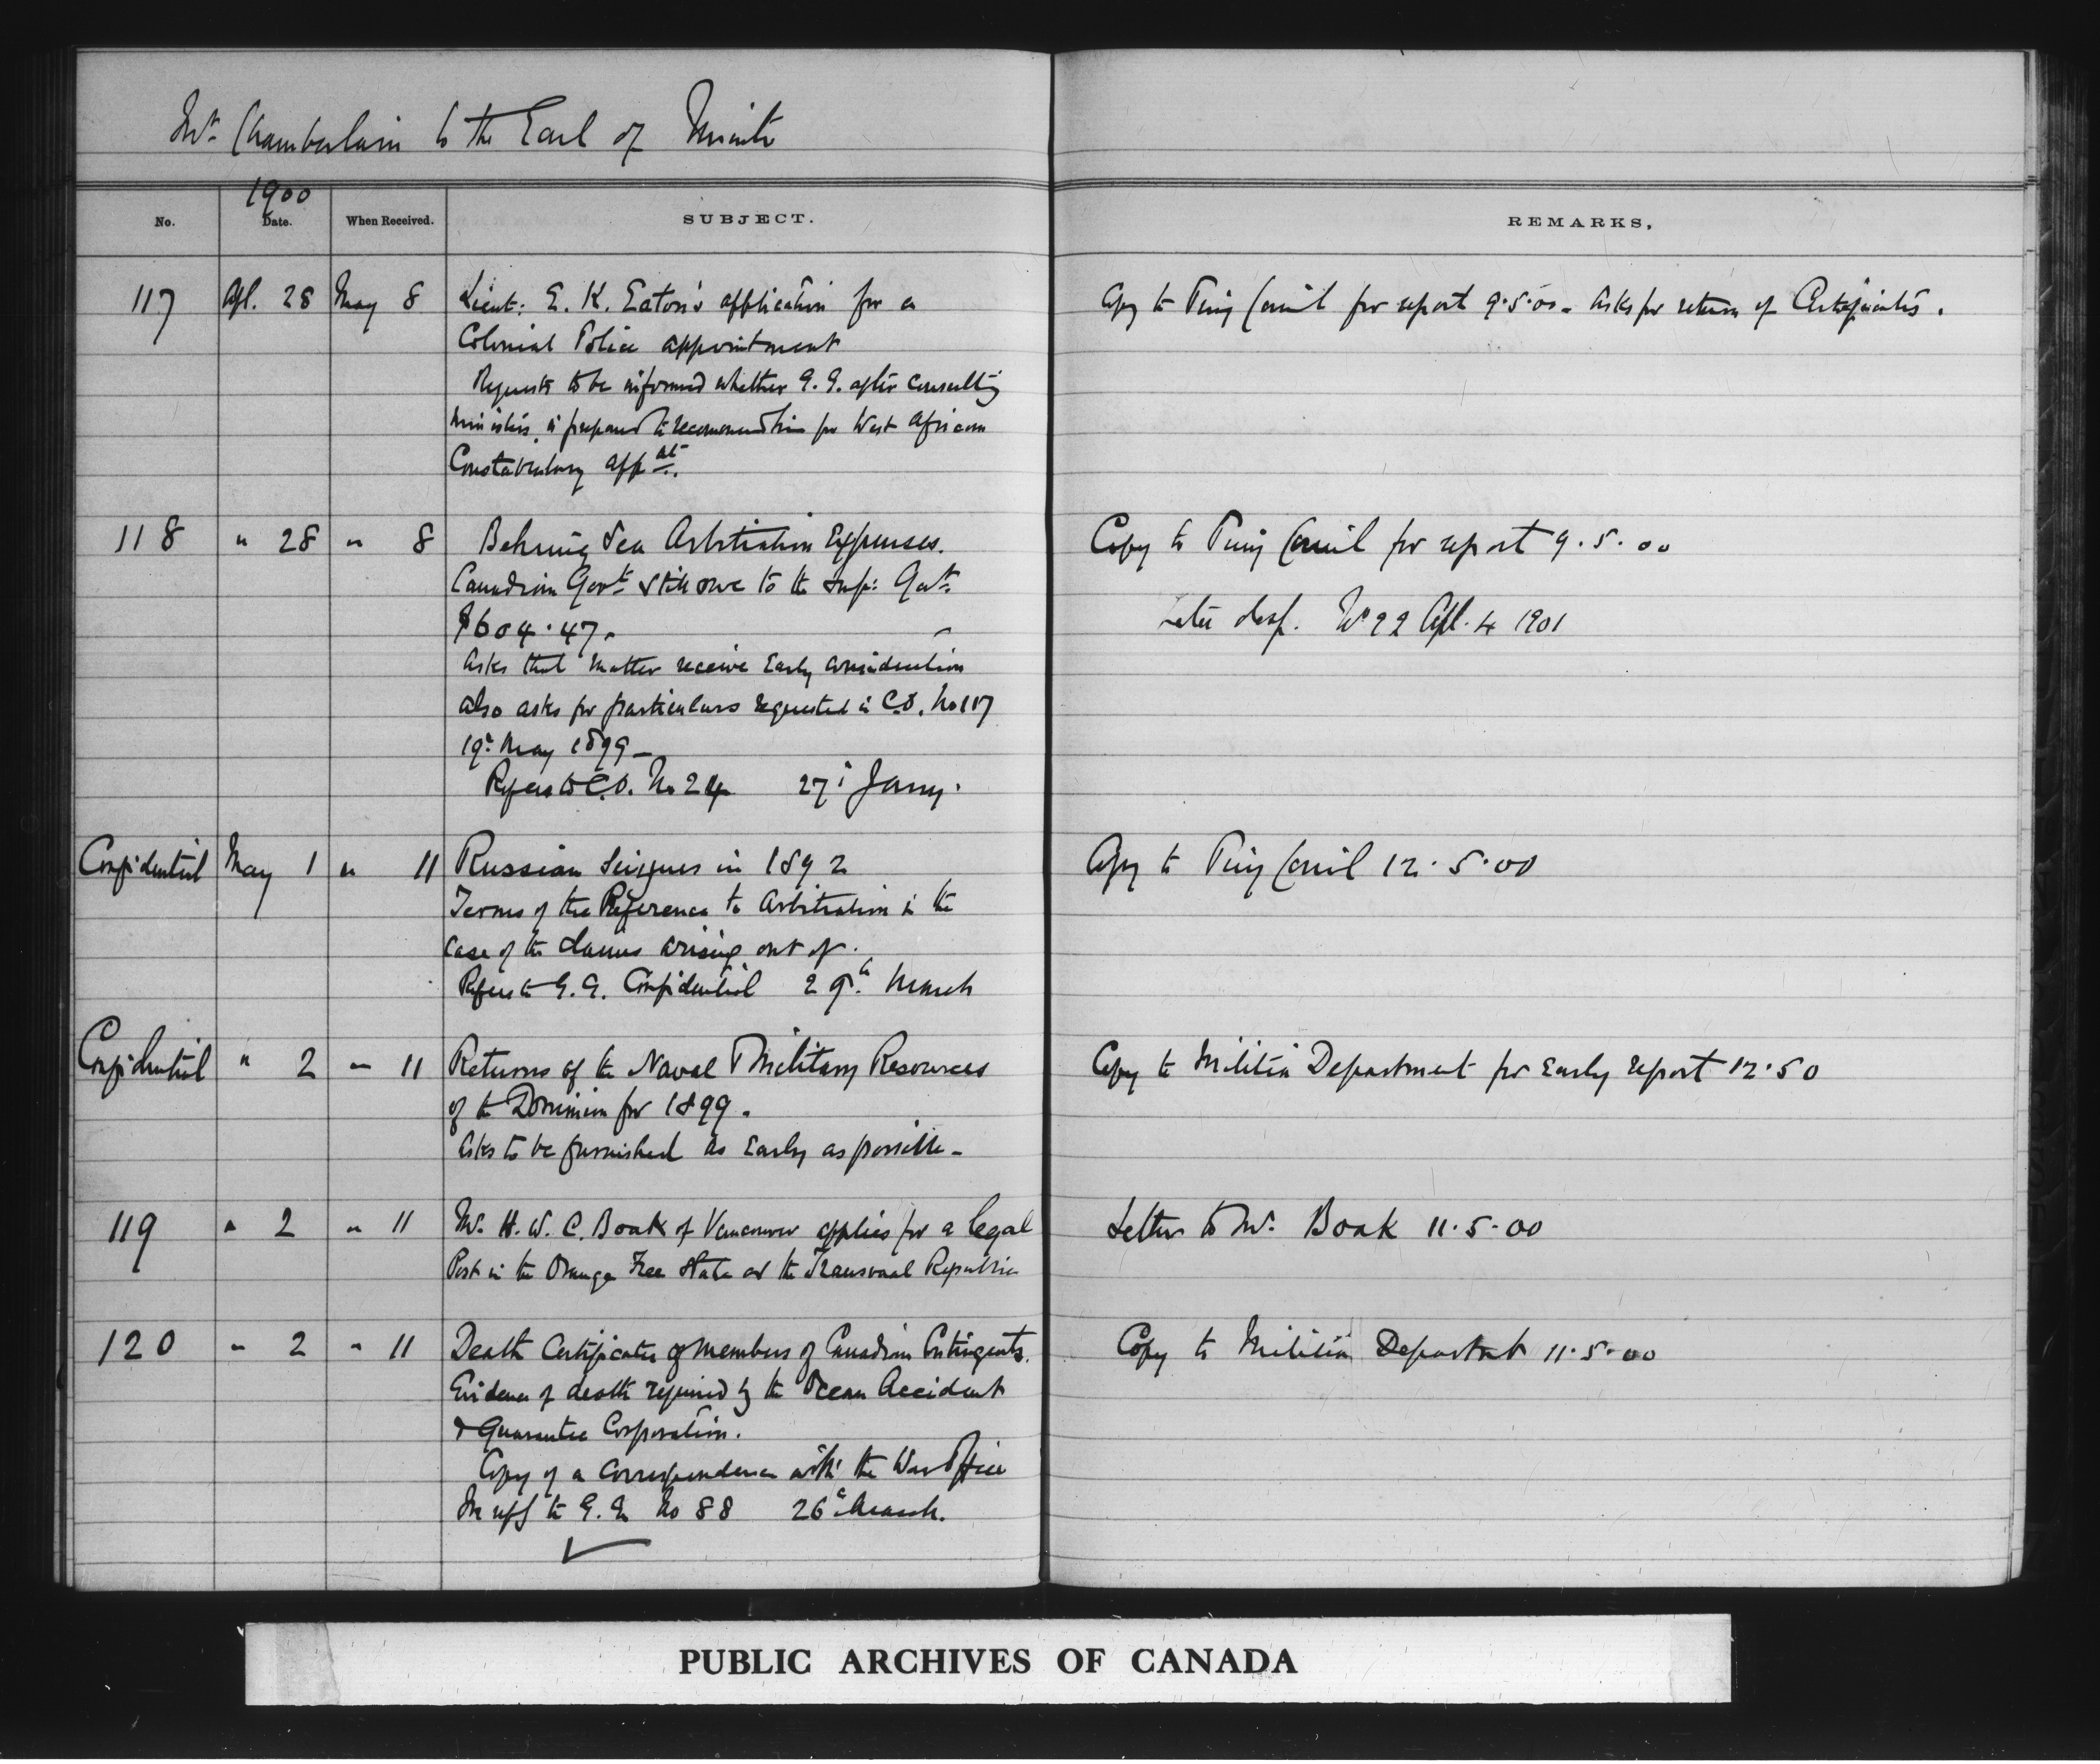 Mr. Chamberlain to the Earl of Minto
1900
No. Date. When Received. SUBJECT. REMARKS.
117 Apl. 28 May 8 Lieut: E. K. Eaton's application for a
Colonial Police appointment
Requests to be informed whether G. G. after consulting
Ministers, is prepared to recommend him for West African
Constabulary app nt.
Copy to Privy Council for report 9.5.00 - Asks for return of
118 " 28 " 8 Behring Sea Arbitration Expenses.
Canadian Govt. still owe to the Imp: Govt.
$604.47 -
Asks that matter receive early consideration
also asks for particulars requested in C.O. No 117
19th May 1899 -
Refers to C.O. No 24 27th Jany.
Copy to Privy Council for report 9.5.00
Later desp. No 92 Apl. 4 1901
Confidential May 1 " 11 Russian Seizures in 1892
Terms of the Reference to Arbitration in the
case of the claims arising out of.
Refers to G.G. Confidential 29th March
Copy to Privy Council 12.5.00
Confidential " 2 " 11 Returns of the Naval & Military Resources
of the Dominion for 1899.
Asks to be furnished as early as possible -
Copy to Militia Department for early report 12.50
119 " 2 " 11 Mr. H. W. C. Boak of Vancouver applies for a legal
Post in the Orange Free State or the Transvaal Republic
Letter to Mr. Boak 11.5.00
120 " 2 " 11 Death Certificates of members of Canadian Contingents.
Evidence of death required by the Ocean Accident
& Guarantee Corporation.
Copy of a correspondence with the War Office
In reply to G.G. No 88 26th March.
Copy to Militia Department 11.5.00
PUBLIC ARCHIVES OF CANADA